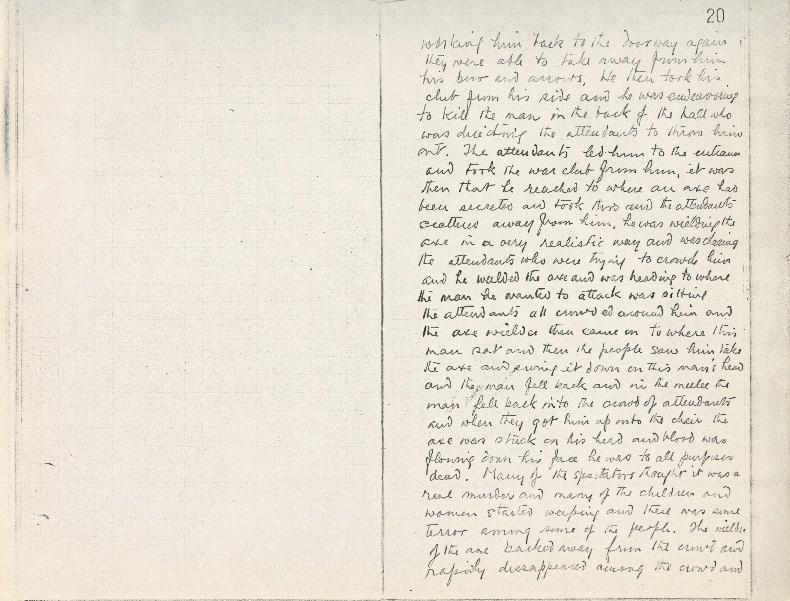 20
working him back to the doorway again
they were able to take away from him
his bow and arrows, He then took his
club from his side and he was endeavoring
to kill the man in the back of the hall who
was directing the attendants to throw him
out. The attendants led him to the entrance
and took the war club from him, it was
then that he reached to where an axe had
been secreted and took this and the attendants
scattered away from him, he was wielding the
axe in a very realistic way and was chasing
the attendants who were trying to crowd him
and he wielded the axe and was heading to where
the man he wanted to attack was sitting
the attendants all crowded around him and
the axe wielder then came on to where this
man sat and then the people saw him take
the axe and swing it down on this man's head
and the man fell back and in the melee the
man fell back into the crowd of attendants
and when they got him up onto the chair the
axe was stuck on his head and blood was
flowing down his face he was to all purposes
dead. Many of the spectators thought it was a
real murder and many of the children and
women started weeping and there was some
terror among some of the people. The wielder
of the axe backed away from the crowd and
rapidly disappeared among the crowd and